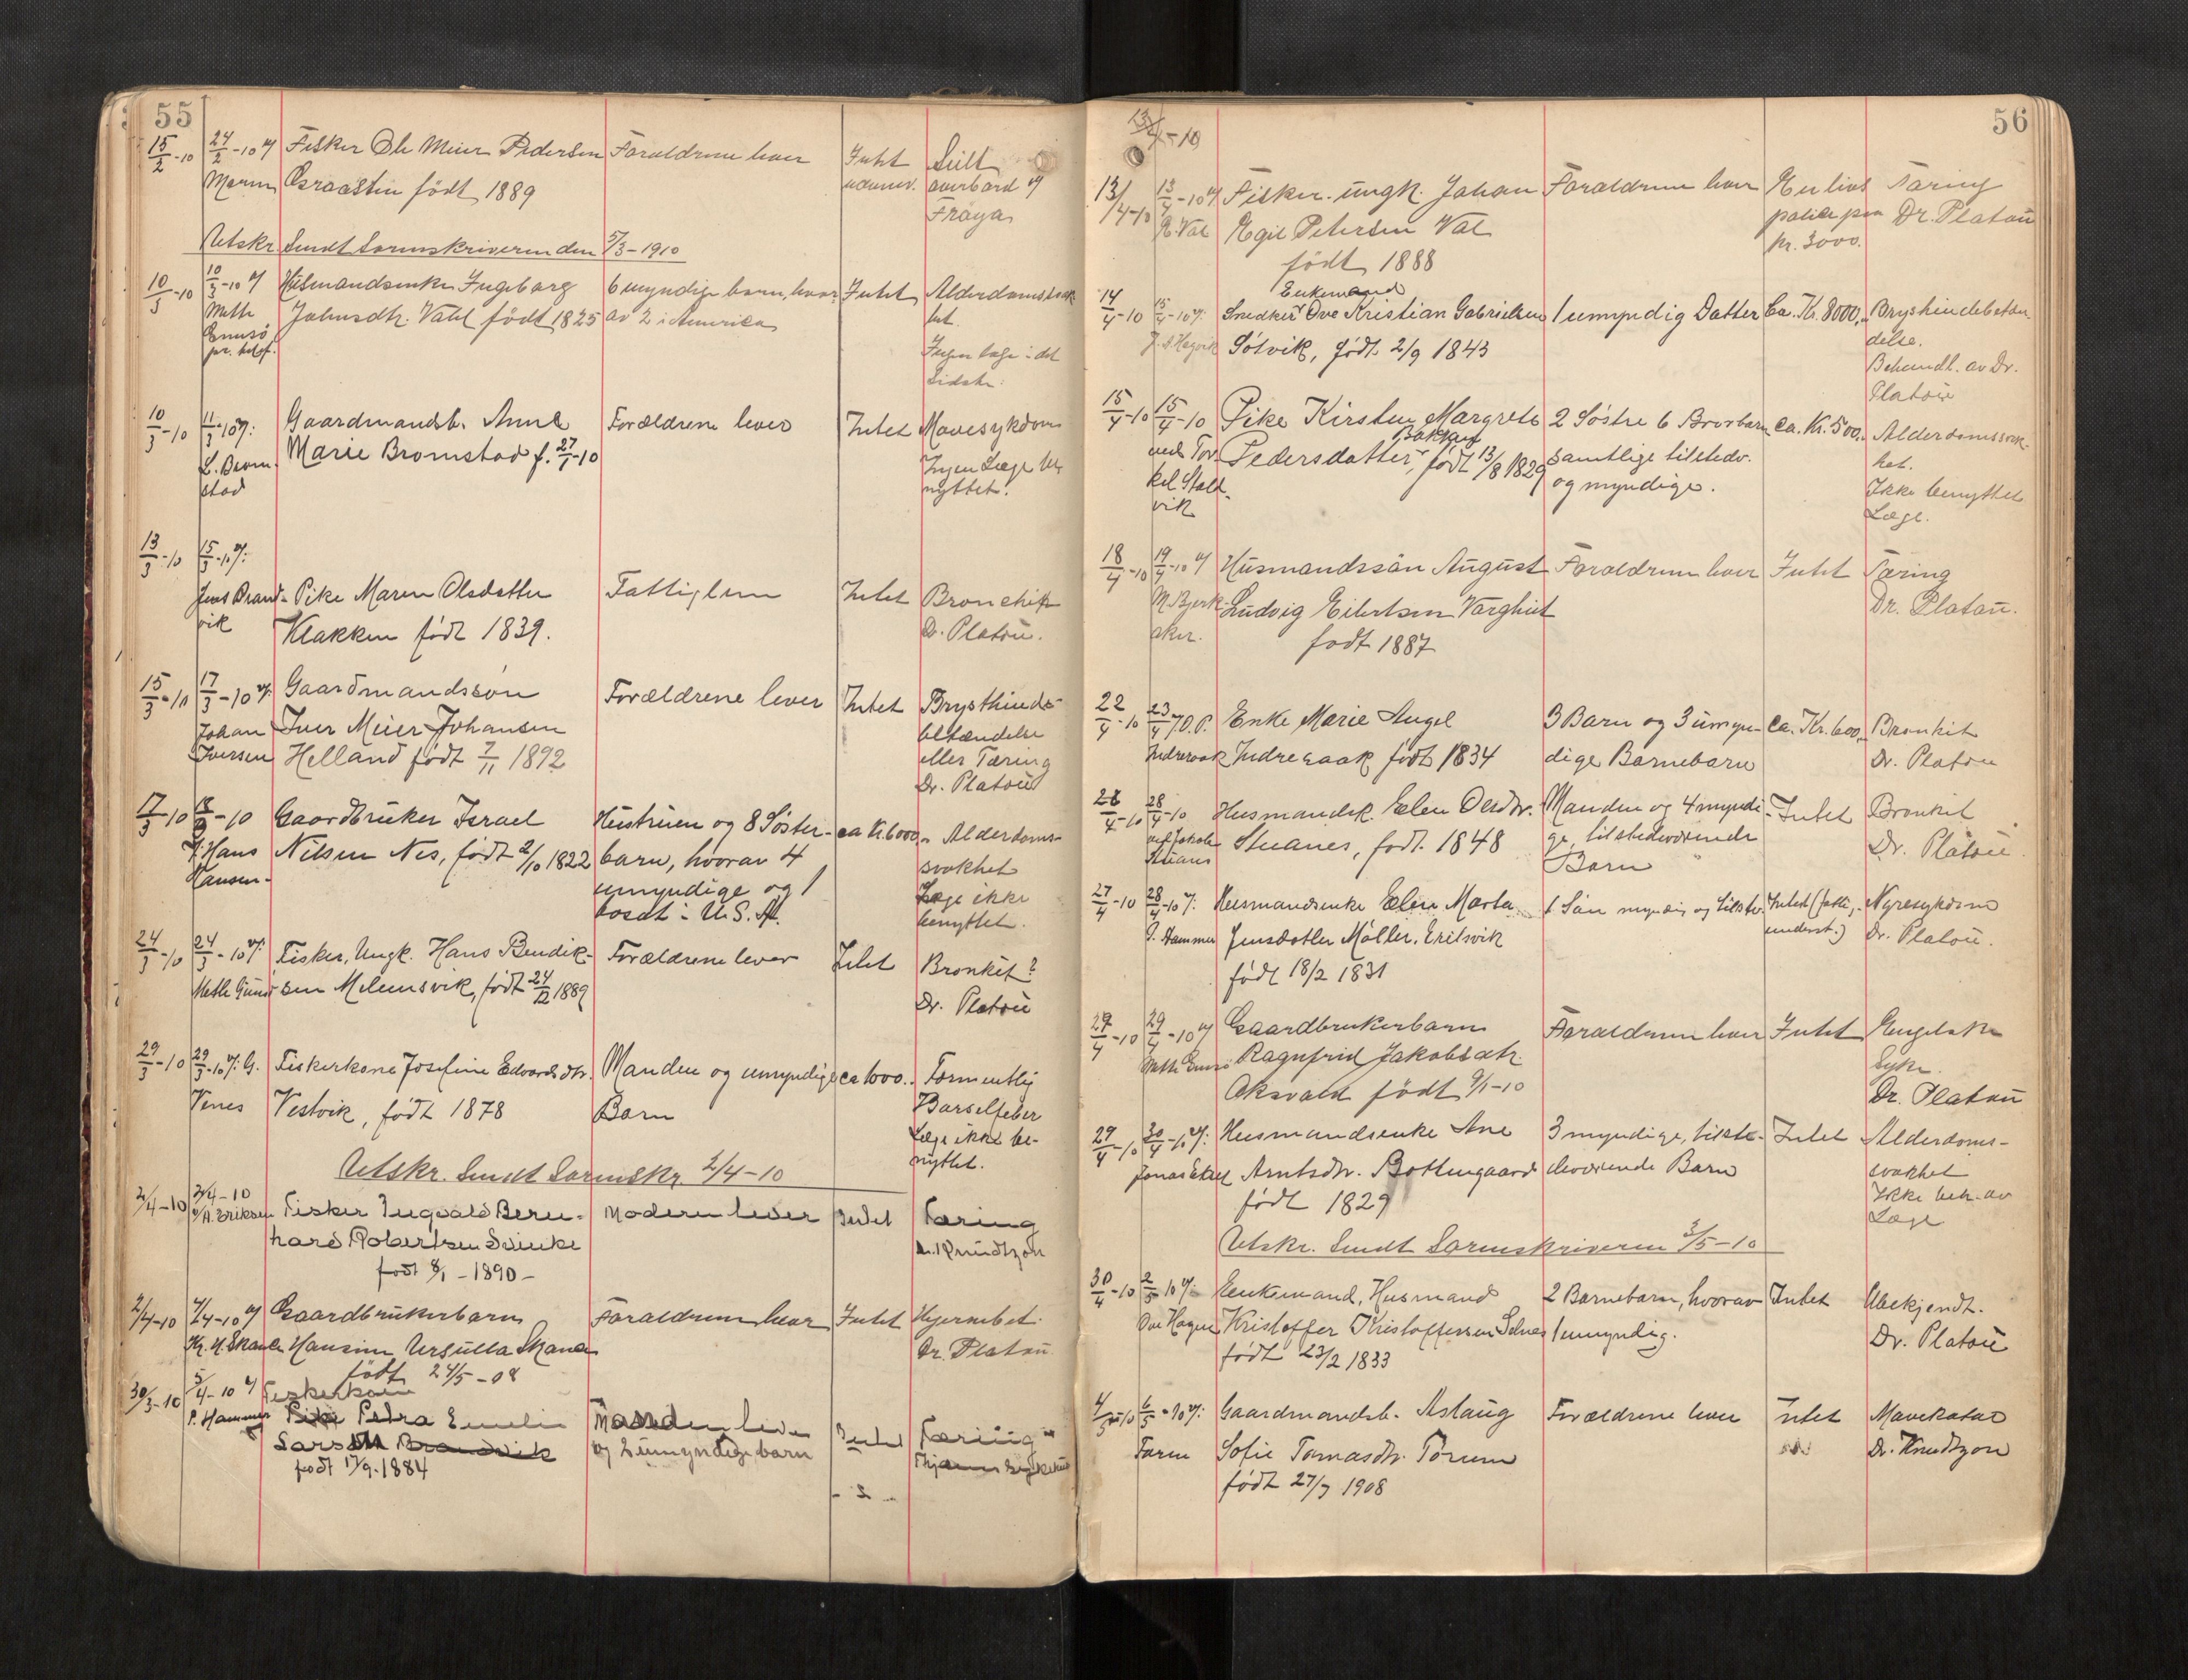 55
15/2-10 24/2-10 v/ Fisker Ole Meier Pedersen Forældrene lever Intet Seilt
Maren født 1889 overbord v/
Frøya
Utskr. Sendt Sorenskriveren den 5/3-1910
10/3-10 10/3-10 v/ Ingeborg 6 myndige barn, hvor Intet Alderdomssvak
Meth Johnsdtr. Vatn født 1825 av 2 i Amerika het.
Snusø Ingen læge i det
pr. telef. sidste.
10/3-10 11/3-10 v/: Gaardmandsb. Anne Forældrene lever Intet Mavesykdom
L. Brom- Marie Bromstad f. 27/1-10 Ingen Læge be-
stad nyttet.
13/3-10 15/3-10 v/:
Jens Brand- Pike Maren Olsdatter Fattiglem Intet Bronchit
vik Klakken født 1839. Dr. Platou.
15/3-10 17/3-10 v/: Gaardmandssøn Forældrene lever Intet Brysthinde-
Johan Iver Meier Johansen betændelse
Iversen Helland født 7/11 1892 eller Tæring
Dr. Platou
17/3-10 18/3-10 Gaardbruker Israel Hustruen og 8 Søster- ca Kr 6000,- Alderdoms-
v/ Hans Nilsen Nes, født 2/10 1822 barn, hvorav 4 svakhet
Hansen. umyndige og 1 Læge ikke
bosat i U.S.A. benyttet.
24/3-10 24/3-10 v/: Fisker, Ungk. Hans Bendik- Forældrene lever Intet Bronkit?
Meth sen Melumsvik, født 24/12 1889 Dr. Platou
29/3-10 29/3-10 v/: G. Fiskerkone Josefine Edvardsdtr. Manden og umyndige ca 1000.- Formentlig
Vines Vestvik, født 1878 Barn Barselfeber
Læge ikke be-
nyttet.
Utskr. Sendt Sorenskr. 2/4-10
2/4-10 2/4-10
v/ A. Eriksen Fisker Ingvald Bern- Moderen lever Intet Tæring
hard Robertsen Dr. Knudtzon
født 8/1-1890-
2/4-10 4/4-10 v/ Gaardbrukerbarn Forældrene lever Intet
Kr. H. Skaner Hansine Ursulla Skaner Dr. Platou
født 24/5-08
30/3-10 5/4-10 v/ Fiskerkone
P. Hammer Petra Emelie Manden lever Intet Tæring
Larsdtr og 2 umyndige barn
født 17/9-1884
56
13/4-10
13/4-10 13/4-10 v/ Fisker. ungk. Johan Forældrene lever En livs Tæring
E. Val Egil Petersen Val police paa Dr. Platou
født 1888 kr. 3000.
Enkemand
14/4-10 15/4-10 v/: Snedker Ove Kristian Gabrielsen 1 umyndig Datter Ca. Kr. 8000,- Brysthindebetæn
Sötvik, født 2/9 1843 delse.
Behandl. av Dr.
Platou
15/4-10 15/4-10 Pike Kirsten Margrete 2 Søstre 6 Brorbarn ca. Kr. 500,- Alderdomssvak-
ved Tor- Pedersdatter, født 13/8 1829 samtlige tilstedv. het.
kel Stall- og myndige. Ikke benyttet
vik Læge.
18/4-10 19/4-10 v/ Husmandssøn August Forældrene lever Intet Tæring
M. Bjerk- Ludvig Eilertsen Varghiet Dr. Platou.
aker. født 1887
22/4-10 23/4 O.P. Enke Marie Angel 3 Barn og 3 umyn- ca. Kr. 600,- Bronkit
Indrevaak født 1834 dige Barnebarn Dr. Platou
28/4-10 28/4-10 Husmandsk. Elen Olsdtr. Manden og 4 myndi- Intet Bronkit
ved Jakob Stuanes, født 1848 ge, tilstedeværende Dr. Platou
Stuanes Barn
27/4-10 28/4-10 v/: Husmandsenke Elen Marta 1 Søn myndig og tilste. Intet (fatti- Nyresykdom
P. Hammer Jensdatter Möller, Eritsvik underst.) Dr. Platou.
født 18/2 1831
29/4-10 29/4-10 v/ Gaardbrukerbarn Forældrene lever Intet Engelske
Meth Ragnfrid Jakobsdtr. syke.
født 9/1-10 Dr. Platou
29/4-10 30/4-10 v/: Husmandsenke Ane 3 myndige, tilste- Intet Alderdoms-
Arntsdtr. Bottengaard deværende Barn svakhet
født 1829 Ikke beh. av
Læge
Utskr. Sendt Sorenskriveren 3/5-10
30/4-10 2/5-10 v/: Enkemand, Husmand 2 Barnebarn, hvorav Intet Ubekjendt.
Ove Hagen Kristoffer Kristoffersen Selnes 1 umyndig. Dr. Platou
født 23/2 1833
4/5-10 6/5-10 v/: Gaardmandsb. Aslaug Forældrene lever Intet Mavekatar
Sofie Tomasdtr. Torum Dr. Knudtzon
født 27/7 1908